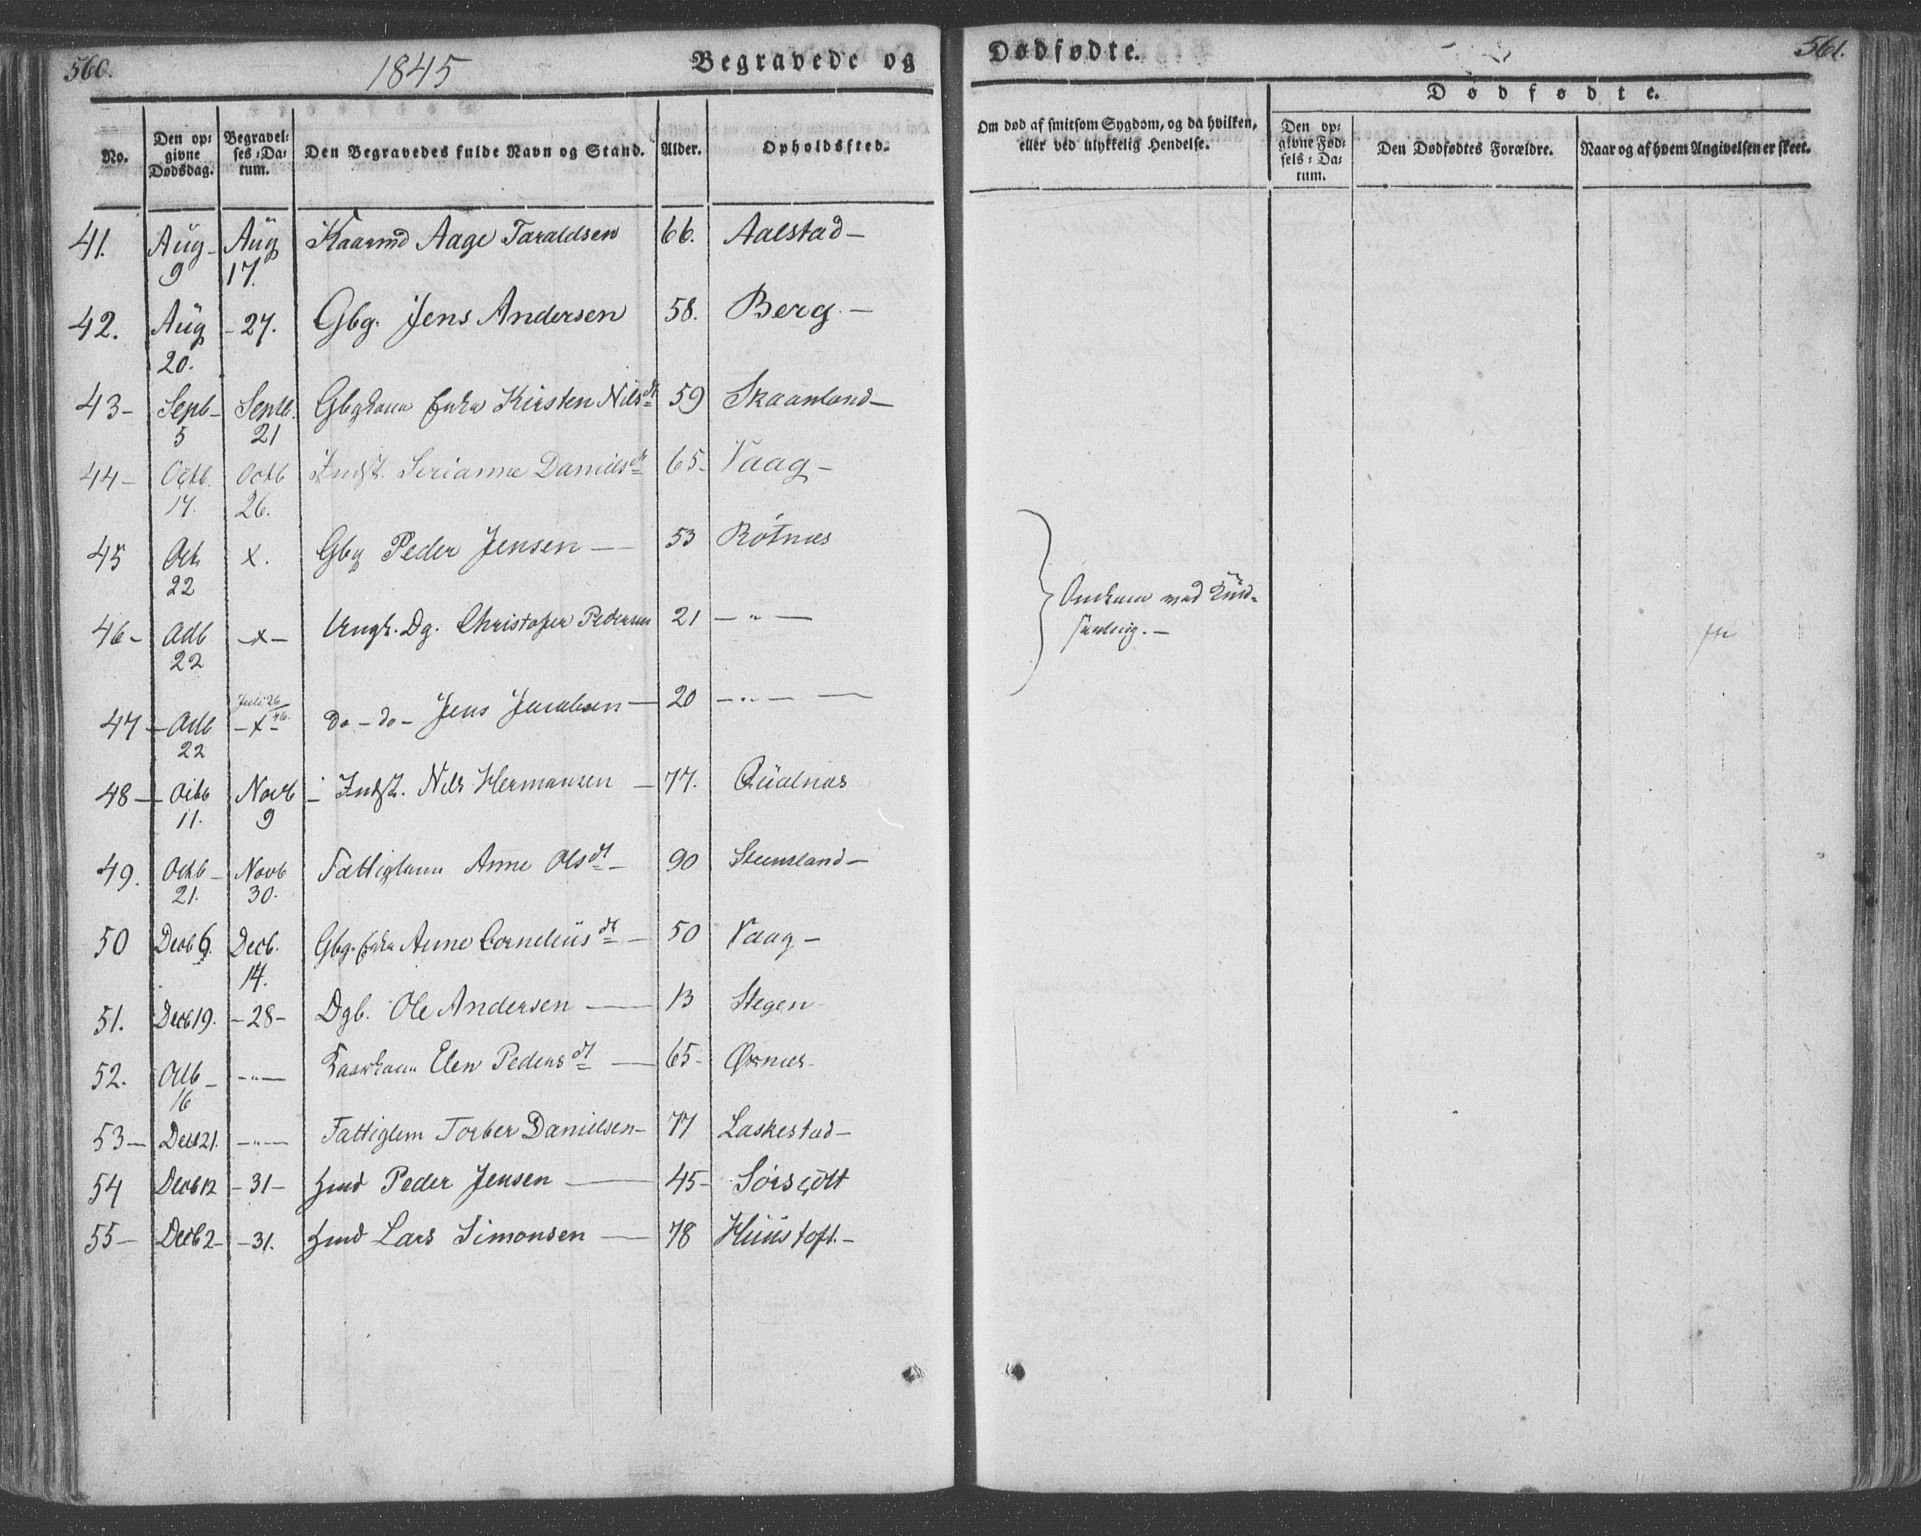 560.
1845
Begravede og
Dødfødte.
561.
No.
Den op-
givne
Dødsdag.
Begravel-
ses-Da-
tum.
Den Begravedes fulde Navn og Stand.
Alder.
Opholdsfted.
Om død af smitsom Sygdom, og da hvilken,
eller ved ulykkelig Hendelse.
Dødfødte.
Den op-
givne Fød-
sels-Da-
tum.
Den Dødfødtes Forældre.
Naar og af hvem Angivelsen er skeet.
41. Aug- 9 Aug 17. Kaarmd Aage Taraldsen 66. Aalstad-
42. Aug 20. -27. Gbg. Jens Andersen 58. Berg.-
43- Septb- 5 Septb. 21 Gbgkone Enke Kirsten Nilsdt 59 Skaanland-
44- Octb. 17. Octb 26. Indst. Serianne Danielsdt 65- Vaag-
45 Oct. 22 x. Gbg Peder Jensen — 53 Røtnæs
46- Octb 22 -x- Ungk. Dg. Christofer Pedersen 21 — " —
47- Octb 22 Juli 26 46. -x- do - do - Jens Jacobsen — 20 - " - —
Omkom ved Kuld-
seiling.-
48- Octb 11. Novb 9 - Indst. Nils Hermansen - 77. Qualnæs
49. Octb- 21. Novb 30. Fattiglem Anne Olsdt - 90 Steensland-
50 Decb 6. Decb. 14. Gbg. Enke Anne Corneliusdt - 50 Vaag-
51. Decb 19. -28- Dgb. Ole Andersen — 13 Stegen
52. Octb- 16 -"- Kaarkone Elen Pedersdt — 65- Ørnes-
53- Decb 21. -"- Fattiglem Torber Danielsen- 77 Laskestad-
54 Decb 12 -31- Peder Jensen — 45-
55- Decb 2- -31. Lars Simonsen — 78 Huustoft.-